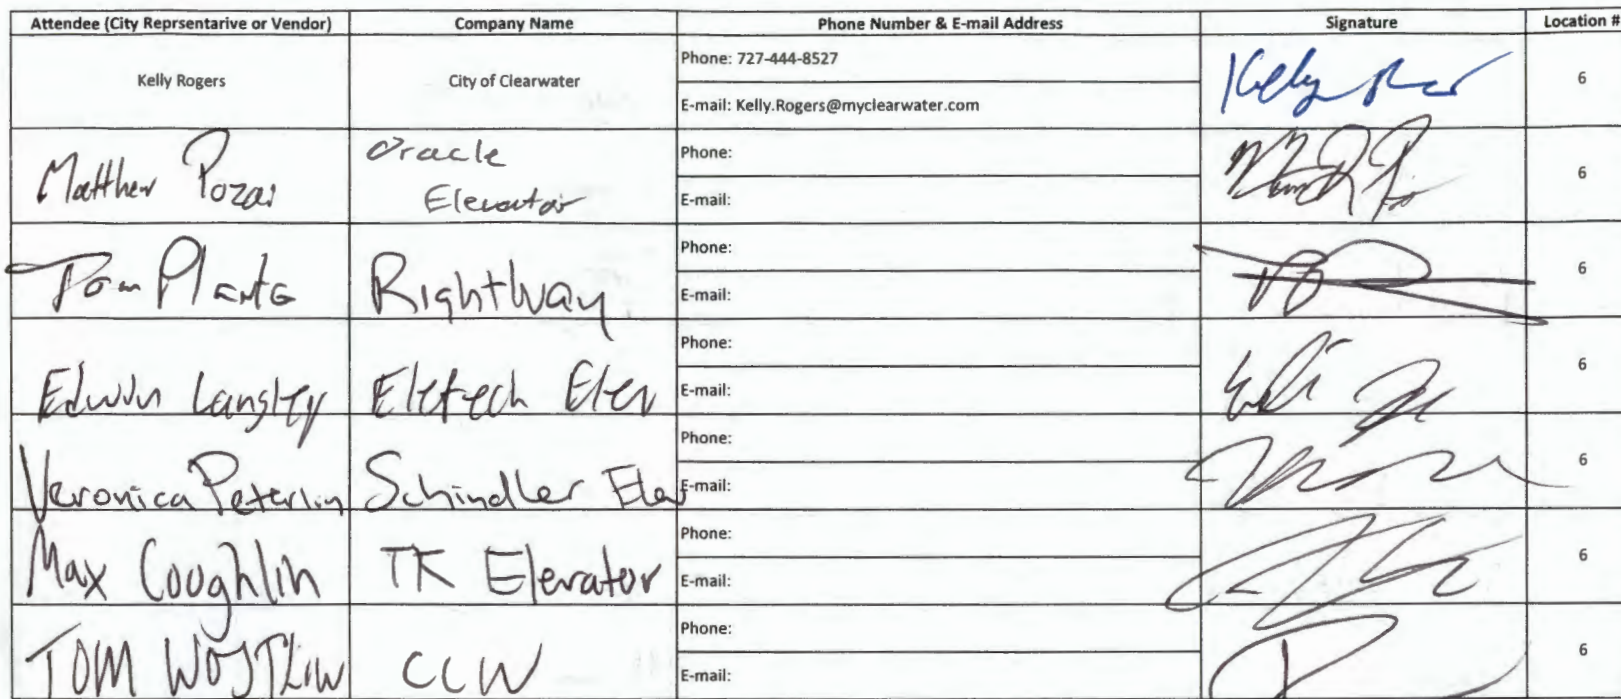 Attendee (City Reprsentarive or Vendor) Company Name Phone Number & E-mail Address Signature Location #
Kelly Rogers City of Clearwater Phone: 727-444-8527 6
E-mail: Kelly.Rogers@myclearwater.com
Matthew Pozar Oracle Phone: 6
Elevator E-mail:
Tom Plante RightWay Phone: 6
E-mail:
Edwin Langley Eletech Elev Phone: 6
E-mail:
Veronica Peterlin Schindler Elev Phone: 6
E-mail:
Max Coughlin TK Elevator Phone: 6
E-mail:
TOM CCW Phone: 6
E-mail: